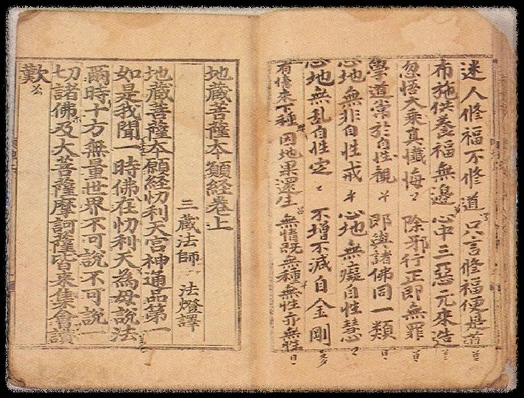 迷人修福不修道 只言修福便是道
布施供養福無邊 心中三惡元來造
忽悟大乘真懺悔 除邪行正即無罪
學道常於自性觀 即與諸佛同一類
心地無非自性戒 心地無癡自性慧
心地無乱自性定 不增不減自金剛
有情來下種 因地果還生 無情既無種 無性亦無性
地藏菩薩本願經卷上
三藏法師 法燈譯
地藏菩薩本願經忉利天宮神通品第一
如是我聞一時佛在忉利天為母說法
爾時十方無量世界不可說不可說一
切諸佛及大菩薩摩訶薩皆來集會讚
歎